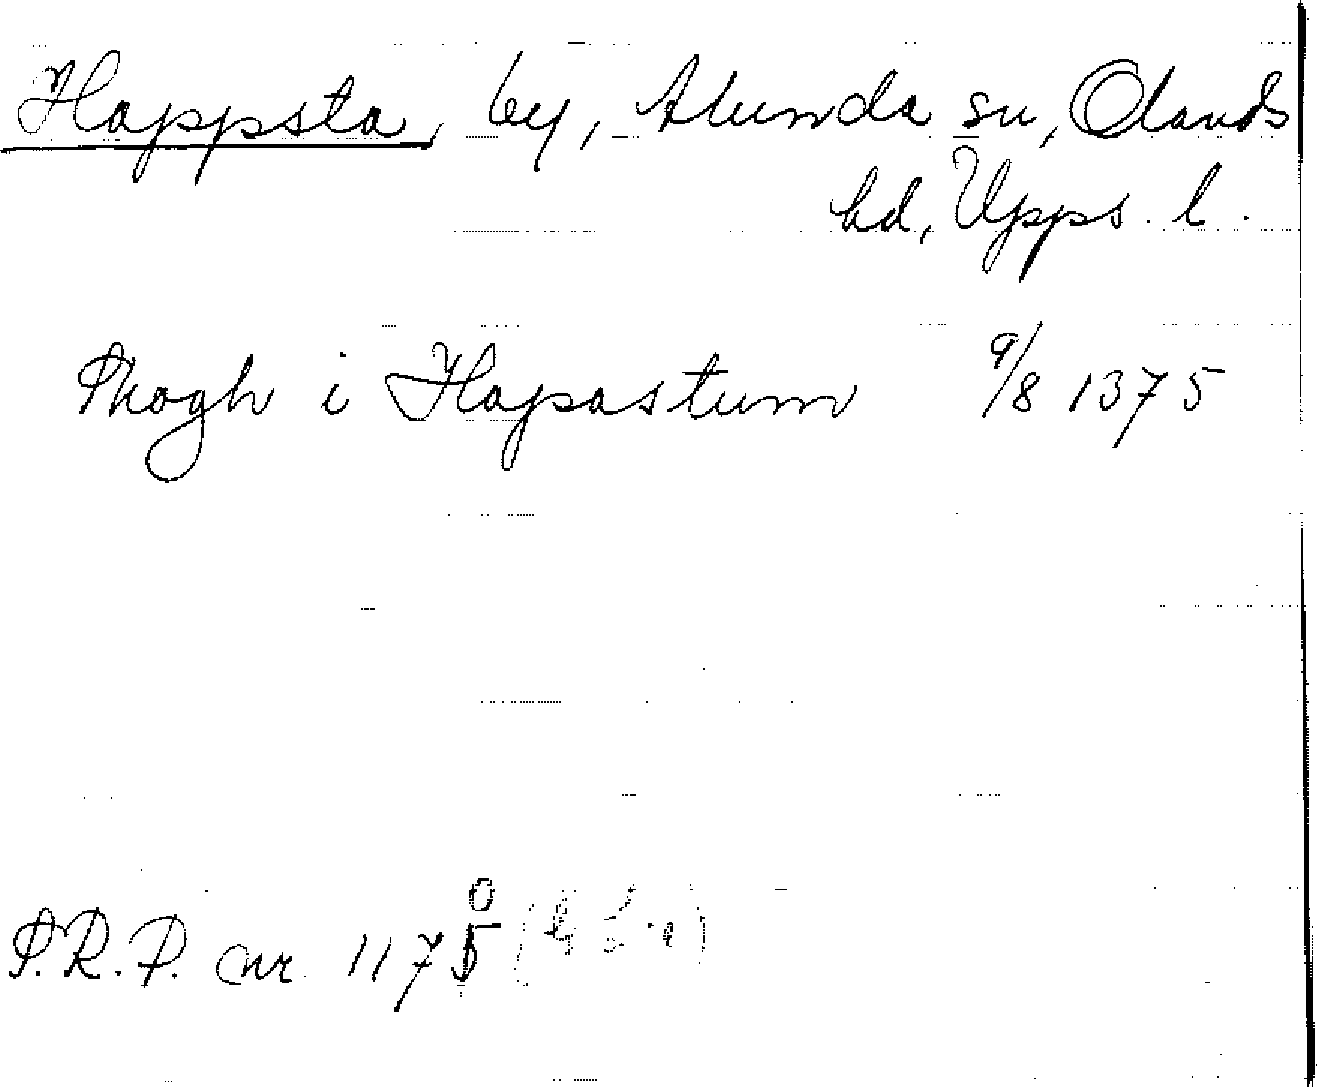 Happsta, by, Alunda sn, Olands
hd, Upps. l.
Skogh i Hapastum 9/8 1375
S.R.P. nr. 1170